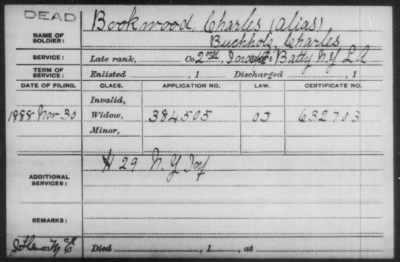 DEAD
Bookwood, Charles (alias)
NAME OF SOLDIER:
Buchholz, Charles
SERVICE: Late rank, Co. 2nd Batty N.Y. L.A.
TERM OF SERVICE: Enlisted , 1 Discharged , 1
DATE OF FILING. CLASS. APPLICATION NO. LAW. CERTIFICATE NO.
Invalid,
1888 Nov. 30 Widow, 384505 632703
Minor,
ADDITIONAL SERVICES: H 29 N.Y. Inf
REMARKS:
Died , 1 , at